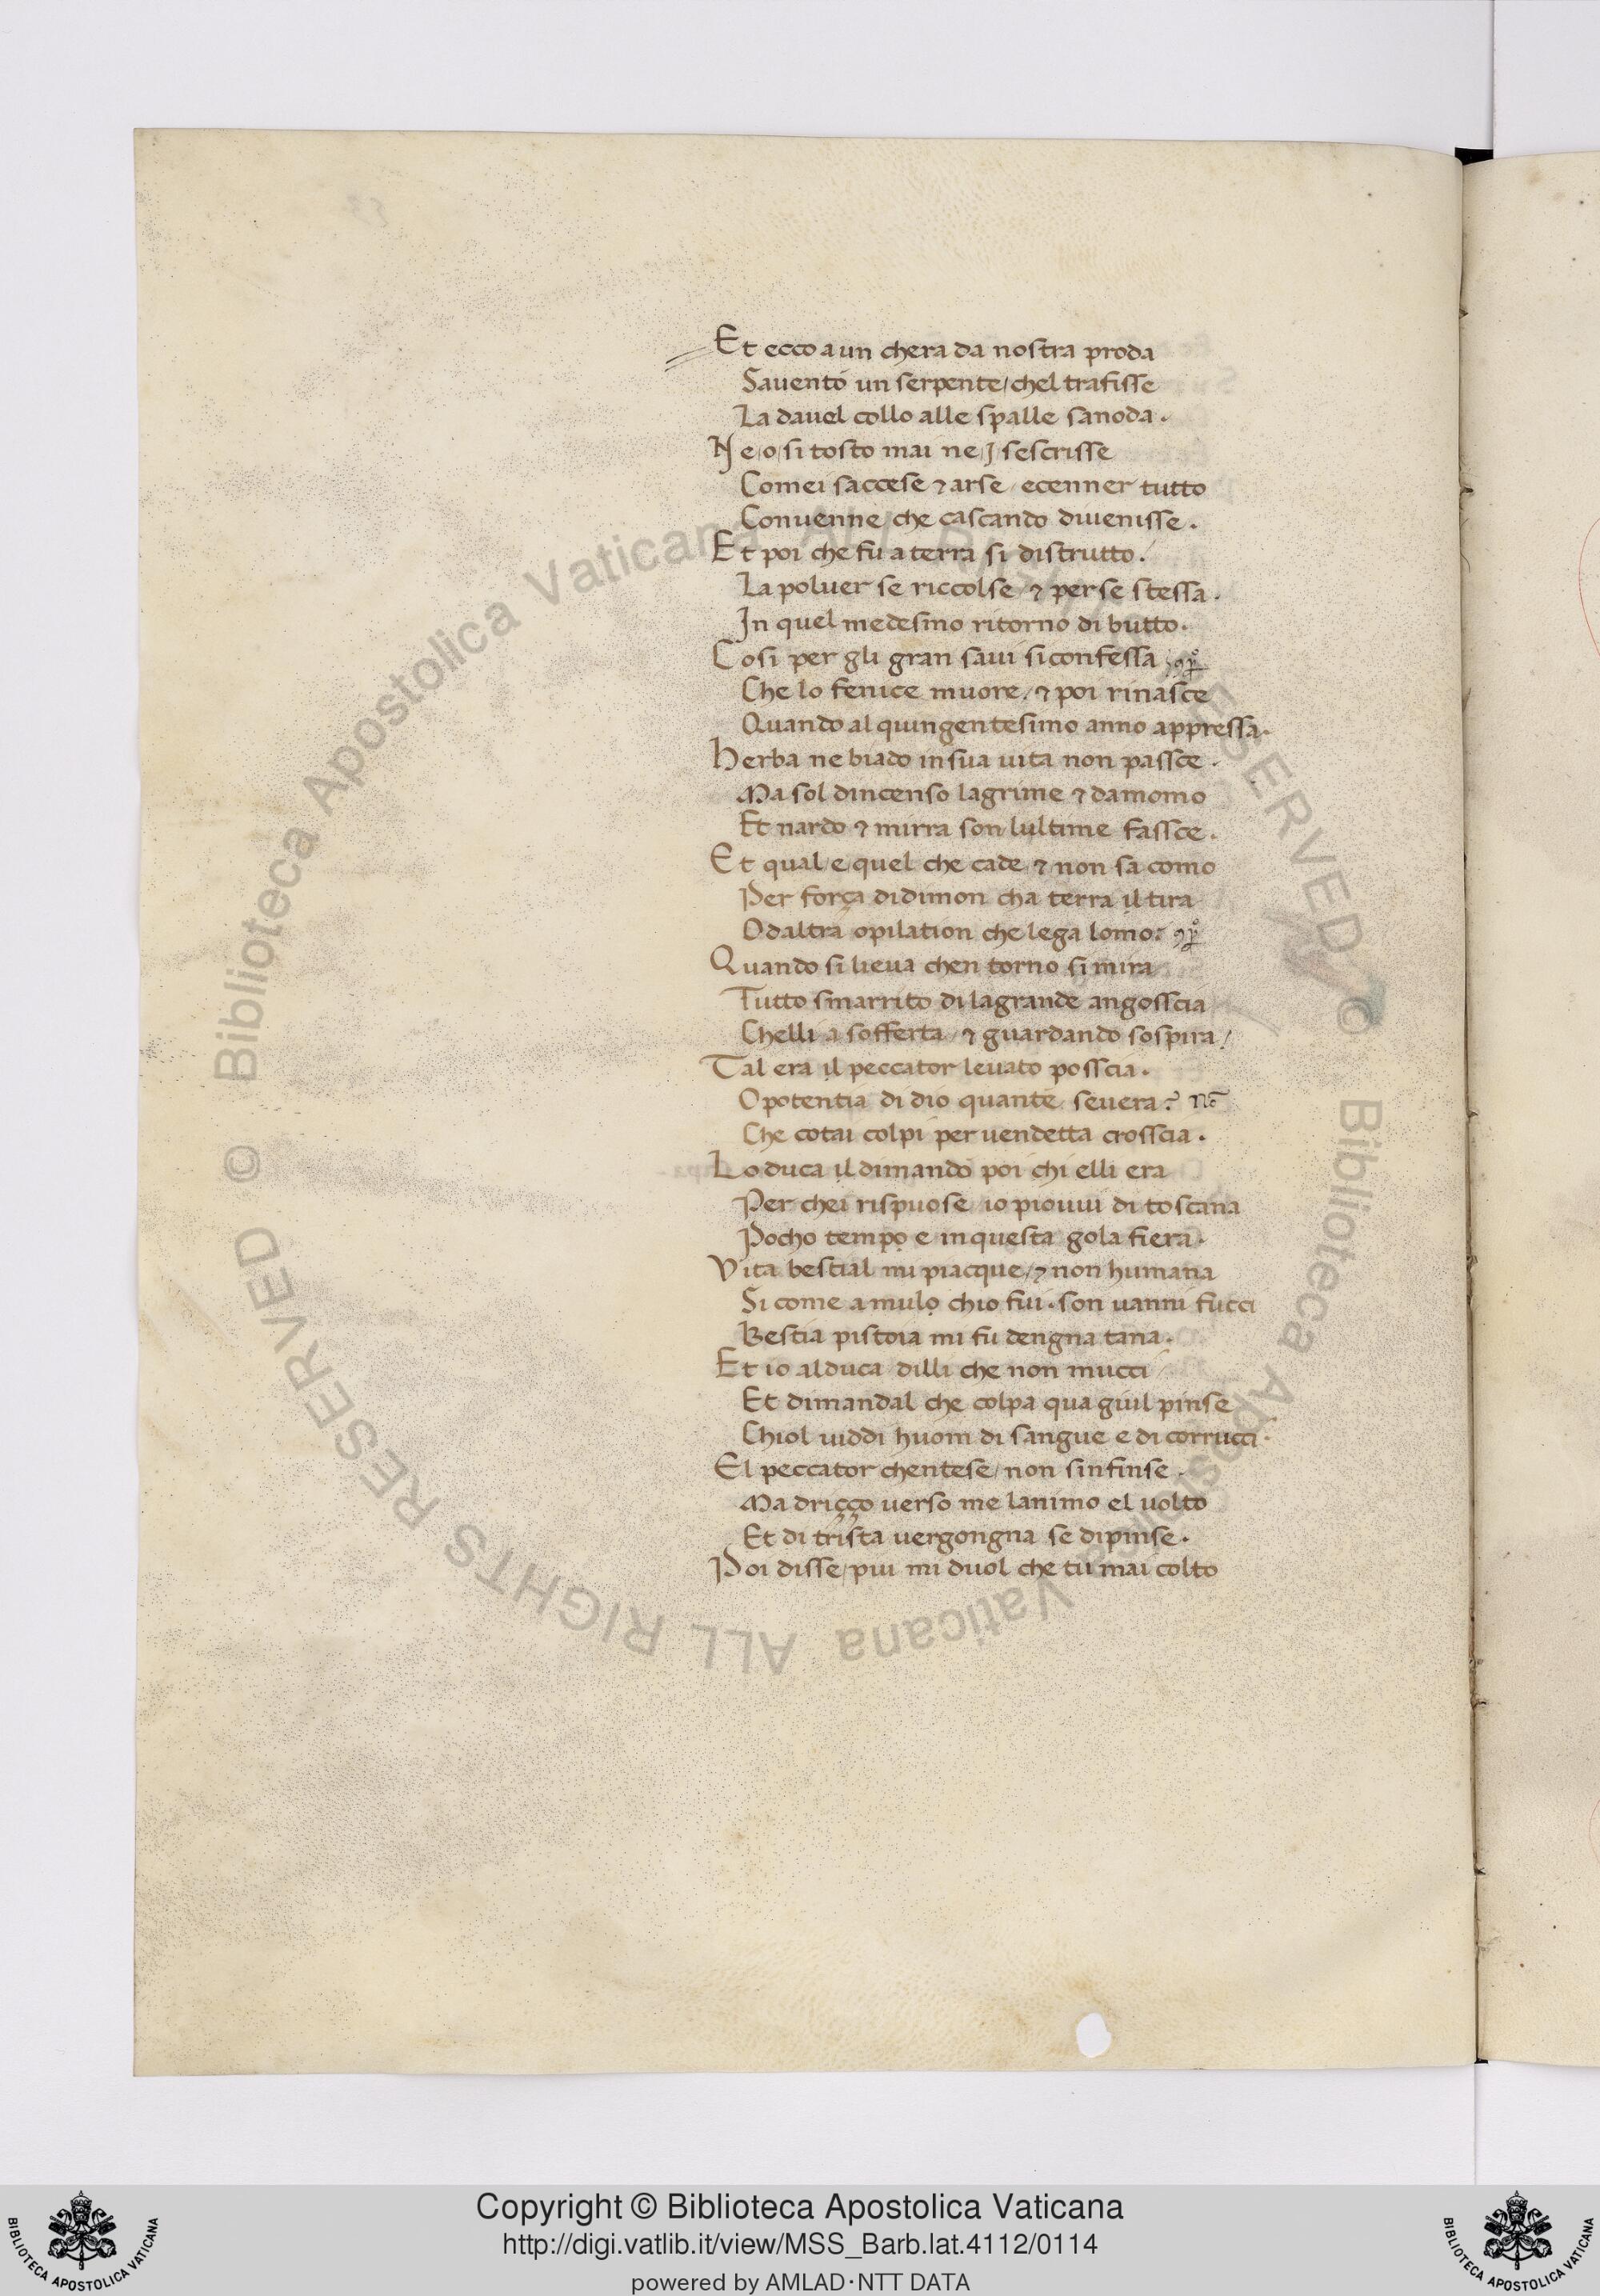 Et ecco a un chera da nostra proda
Sauento un serpente/chel trafisse
La dauel collo alle spalle sanoda.
Ne/o/si tosto mai ne/J/sescrisse
Comei saccese ⁊ arse/ecenner tutto
Conuenne che cascando diuenisse.
Et poi che fu a terra si distrutto/
La poluer se riccolse/⁊ perse stessa.
In quel medesmo ritorno di butto.
Cosi per gli gran saui siconfessa
Che lo fenice muore/⁊ poi rinasce
Quando al quingentesimo anno appressa.
Herba ne biado insua uita non passce.
Ma sol dincenso lagrime ⁊ damomo
Et nardo ⁊ mirra son/lultime fassce.
Et qual/e/quel che cade/⁊ non sa como
Per força didimon cha terra il tira
O daltra opilation che lega lomo.
Quando si lieua chen torno si mira
Tutto smarrito di lagrande angosscia
Chelli a sofferta/⁊ guardando sospira/
Tal era il peccator leuato posscia.
O potentia di dio quante seuera? nō
Che cotai colpi per uendetta crosscia.
Lo duca il dimando poi chi elli era
Per chei rispuose/io piouui di toscana
Pocho tempo e inquesta gola fiera.
Vita bestial mi piacque/⁊ non humana
Si come a mulo chio fui.son uanni fucci
Bestia pistoia mi fu dengna tana.
Et io alduca/dilli che non mucci/
Et dimandal che colpa qua giuil pinse
Chiol uiddi huom di sangue e di corrucci.
El peccator chentese/non sinfinse.
Ma driçço uerso me lanimo el uolto
Et di trista uergongna se dipinse.
Poi disse/piu mi duol che tu mai colto
Copyright © Biblioteca Apostolica Vaticana
http://digi.vatlib.it/view/MSS_Barb.lat.4112/0114
powered by AMLAD·NTT DATA
BIBLIOTECA APOSTOLICA VATICANA
BIBLIOTECA APOSTOLICA VATICANA
© Biblioteca Apostolica Vaticana ALL RIGHTS RESERVED © Biblioteca Apostolica Vaticana ALL RIGHTS RESERVED